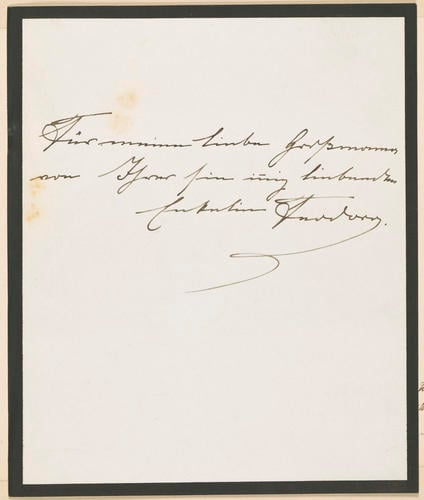 Für meine liebe Großmama
von Ihrer sie innig liebenden
Enkelin Feodora.